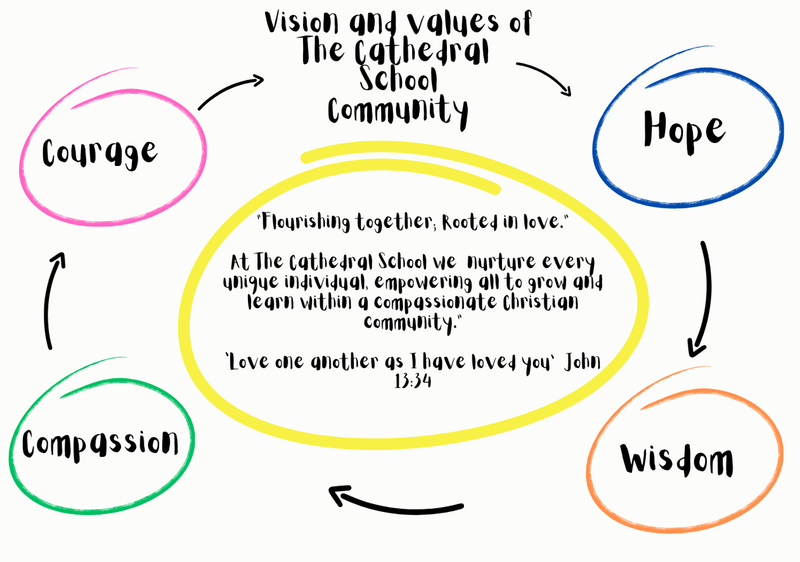 Vision and values of
The Cathedral
School
Community
Courage
Hope
"Flourishing together; Rooted in love."
At The Cathedral School we nurture every
unique individual, empowering all to grow and
learn within a compassionate Christian
community."
'Love one another as I have loved you' John
13:34
Compassion
Wisdom